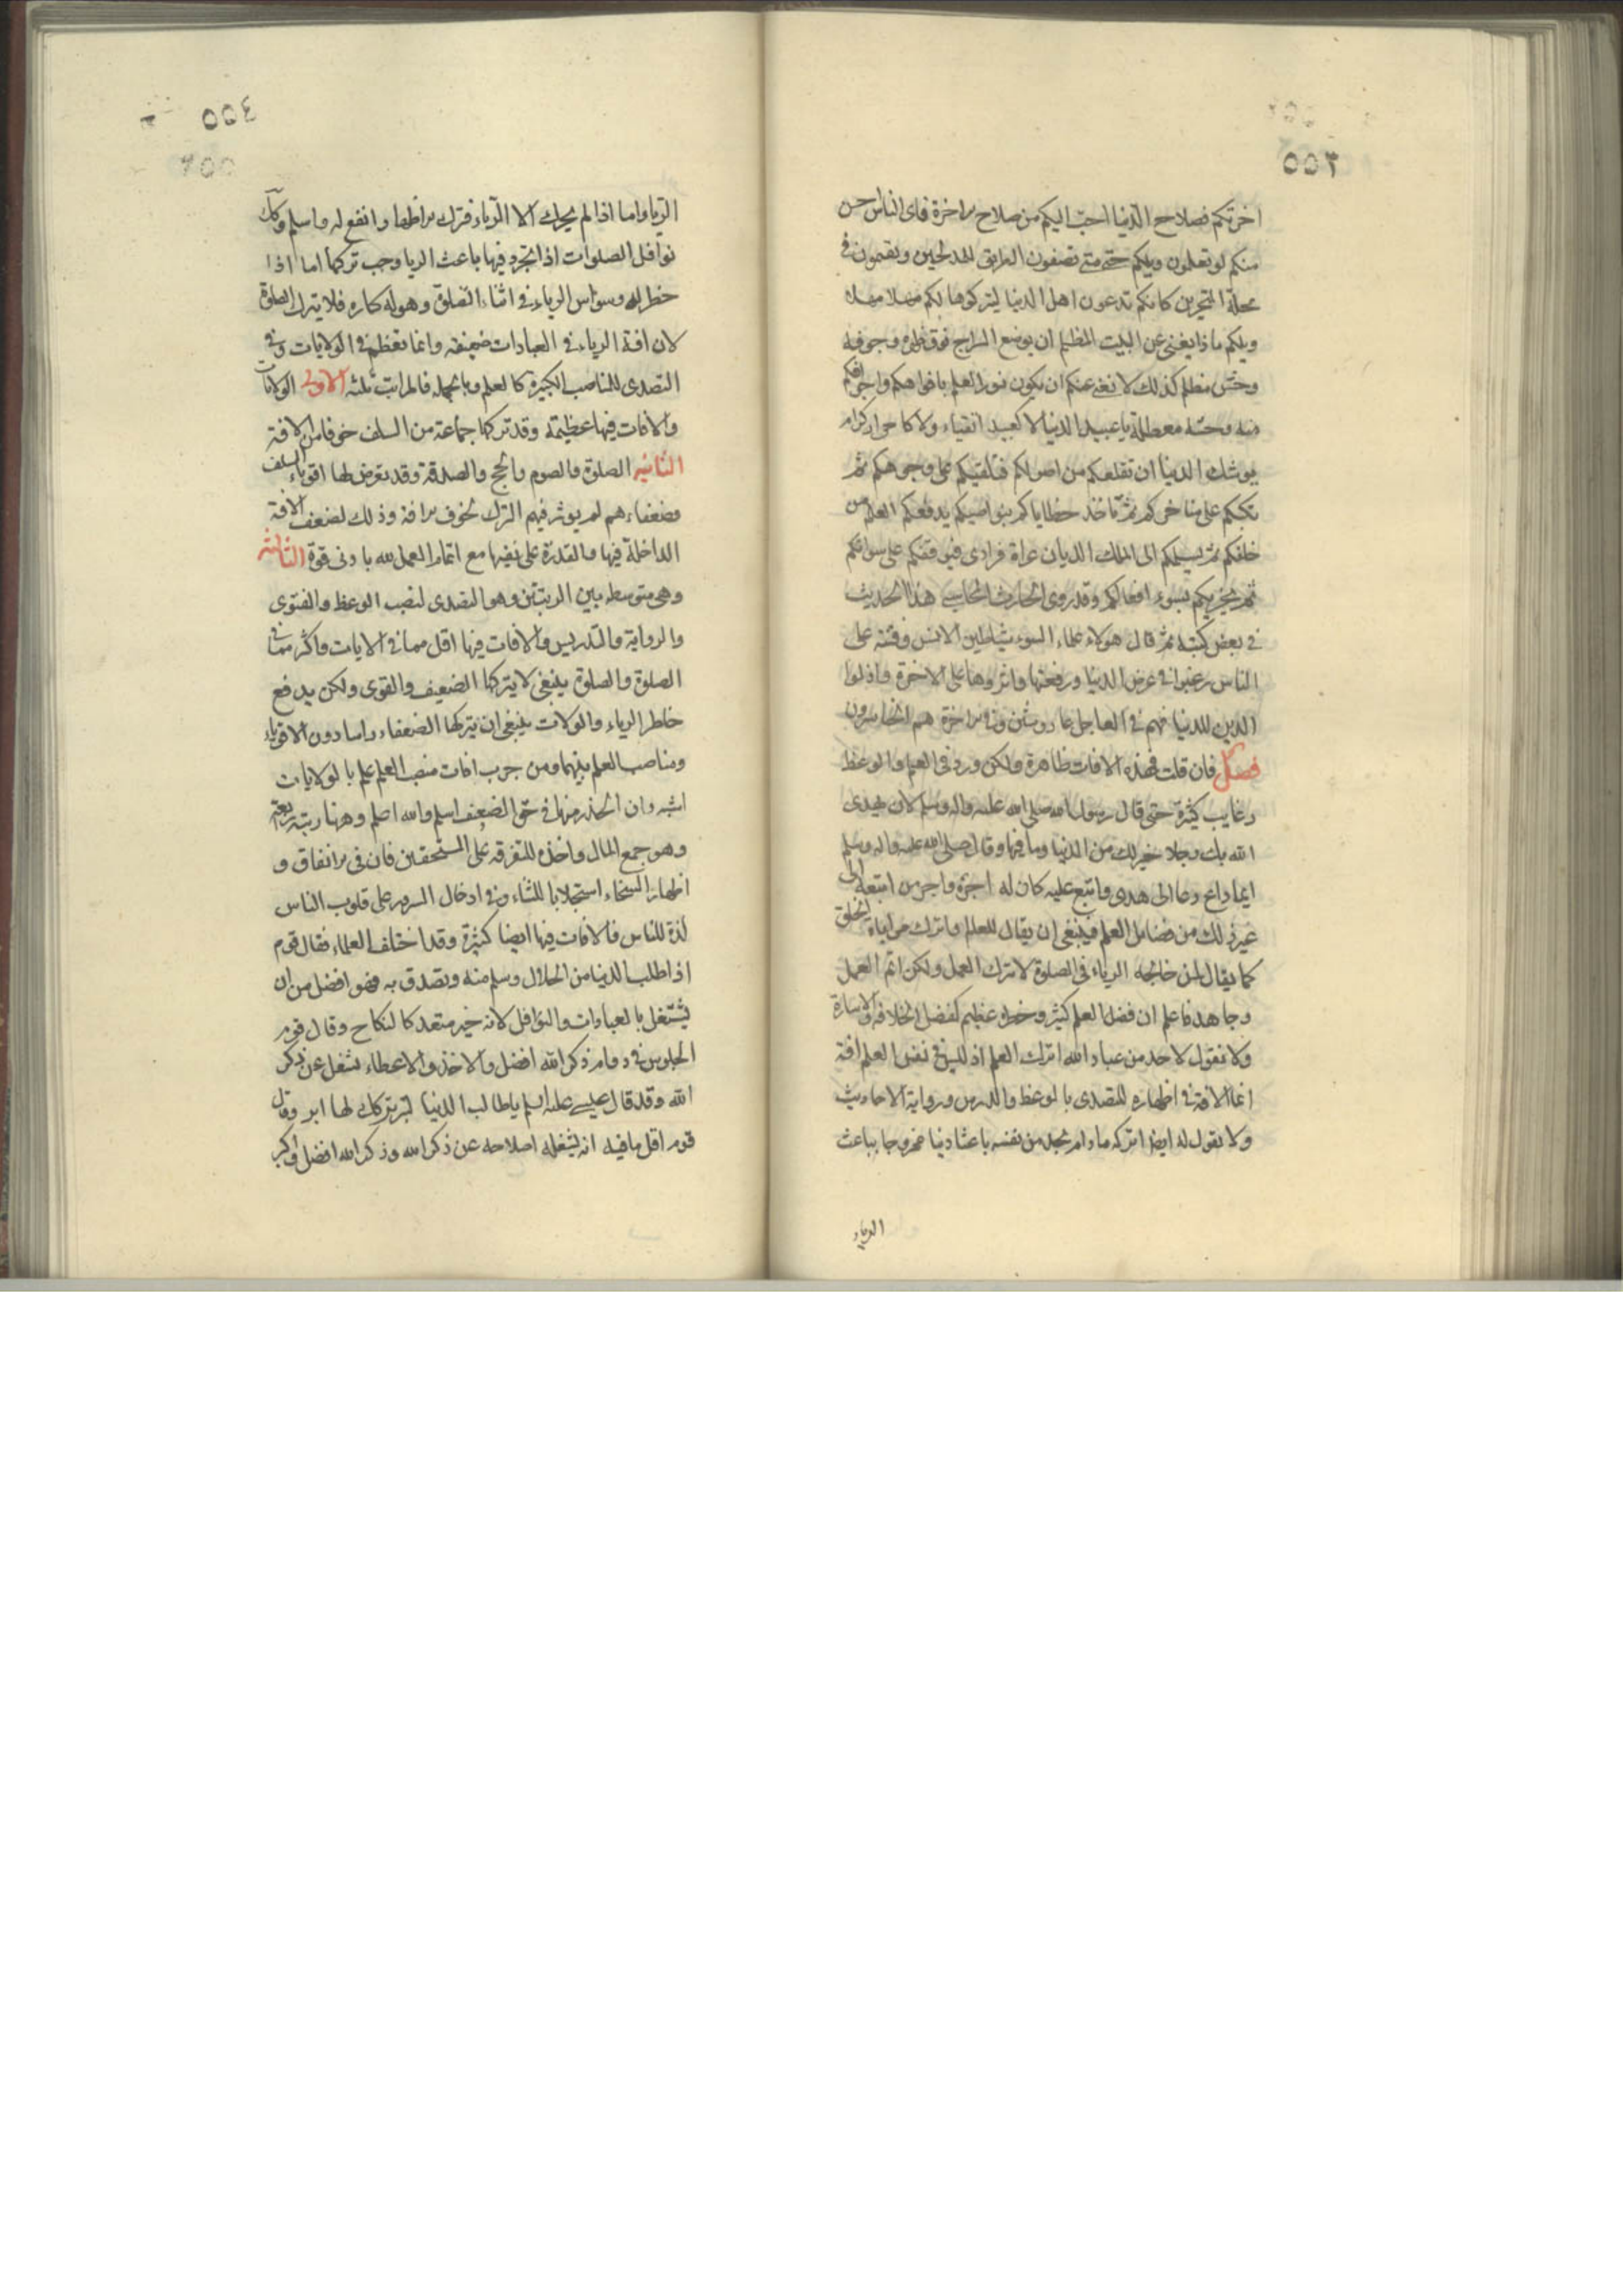 ٥٥٣
اخرتكم فصلاح الدنيا احبّ اليكم من صلاح الاخرة فاى الناس اخس
منكم لو تعلمون ويلكم حتى متى تصفون الطريق للمدلجين وتقيمون فى
محلة المتحيرين كانكم تدعون اهل الدنيا ليتركوها لكم مهلا مهلا
ويلكم ماذا يغنى عن البيت المظلم ان يوضع السراج فوق ظهره وجوفه
وحش مظلم كذلك لا يغنى عنكم ان يكون نور العلم بافواهكم واجوافكم
منه وحشة معطلة يا عبيد الدنيا لا كعبيد اتقياء ولا كاحرار كرام
يوشك الدنيا ان تقلعكم من اصولكم فتلقيكم على وجوهكم ثم
تكبكم على مناخركم ثم تاخذ خطاياكم بنواصيكم يدفعكم العلم من
خلفكم ثم يسلمكم الى الملك الديان عراة فرادى فيوقفكم على سواتكم
ثم يجزيكم بسوء افعالكم وقد روى الحارث المحاسبى هذا الحديث
فى بعض كتبه ثم قال هولاء علماء السوء شياطين الانس وفتنة على
الناس رغبوا فى عرض الدنيا ورفعتها واثروها على الاخرة واذلوا
الدين للدنيا فهم فى العاجل عار وشين وفى الاخرة هم الخاسرون
فصل فان قلت فهذه الافات ظاهرة ولكن ورد فى العلم والوعظ
رغايب كثيرة حتى قال رسول الله صلى الله عليه واله وسلم لان يهدى
الله بك رجلا خير لك من الدنيا وما فيها وقال صلى الله عليه واله وسلم
ايما داع دعا الى هدى واتبع عليه كان له اجره واجر من اتبعه الى
غير ذلك من فضائل العلم فينبغى ان يقال للعالم واترك مراياة الخلق
كما يقال لمن خالجه الرياء فى الصلوة لا تترك العمل ولكن اتم العمل
وجاهد فاعلم ان فضل العلم كثير وخطره عظيم كفضل الخلافة والامارة
ولا نقول لاحد من عباد الله اترك العلم اذ ليس فى نفس العلم افة
انما الافة فى اظهاره للتصدى بالوعظ والدرس ورواية الاحاديث
ولا نقول له ايضا اتركه ما دام يجد من نفسه باعثا دينيا ممزوجا بباعث
الرياء
٥٥٤
الريا واما اذا لم يحركه الا الرياء فترك الاظهار انفع له واسلم وكذلك
نوافل الصلوات اذا تجرد فيها باعث الريا وجب تركها اما اذا
خطر له وسواس الرياء فى اثناء الصلوة وهو له كاره فلا يترك الصلوة
لان افة الرياء فى العبادات ضعيفة وانما تعظم فى الولايات وفى
التصدى للمناصب الكبيرة كالعلم وبالجملة فالمراتب ثلثة الاولى الولايات
والافات فيها عظيمة وقد تركها جماعة من السلف خوفا من الافة
الثانية الصلوة والصوم والحج والصدقة وقد تعرض لها اقوياء السلف
وضعفاءهم لم يوثر فيهم الترك لخوف الافة وذلك لضعف الافة
الداخلة فيها والقدرة على نفيها مع اتمام العمل لله بادنى قوة الثالثة
وهى متوسطة بين الرتبتين وهو التصدى لنصب الوعظ والفتوى
والرواية والتدريس والافات فيها اقل مما فى الايات واكثر مما فى
الصلوة والصلوة ينبغى لا يتركها الضعيف والقوى ولكن يدفع
خاطر الرياء والولات ينبغى ان يتركها الضعفاء راسا دون الاقوياء
ومناصب العلم بينهما ومن جرب افات منصب العلم علم بالولايات
اشبه وان الحذر منها فى حق الضعيف اسلم والله اعلم وههنا رتبة رابعة
وهو جمع المال واخذه للتفرقة على المستحقين فان فى الانفاق و
اظهار السخاء استجلابا للثناء وفى ادخال السرور على قلوب الناس
لذة للناس فالافات فيها ايضا كثيرة وقد اختلف العلماء فقال قوم
اذا طلب الدنيا من الحلال وسلم منه وتصدق به فهو افضل من ان
يشتغل بالعبادات والنوافل لانه خير متعد كالنكاح وقال قوم
الجلوس فى دوام ذكر الله افضل والاخذ والاعطاء يشغل عن ذكر
الله وقد قال عيسى عليه السلم يا طالب الدنيا لتبر تركك لها ابر وقال
قوم اقل ما فيه انه يشغله اصلاحه عن ذكر الله وذكر الله افضل واكبر